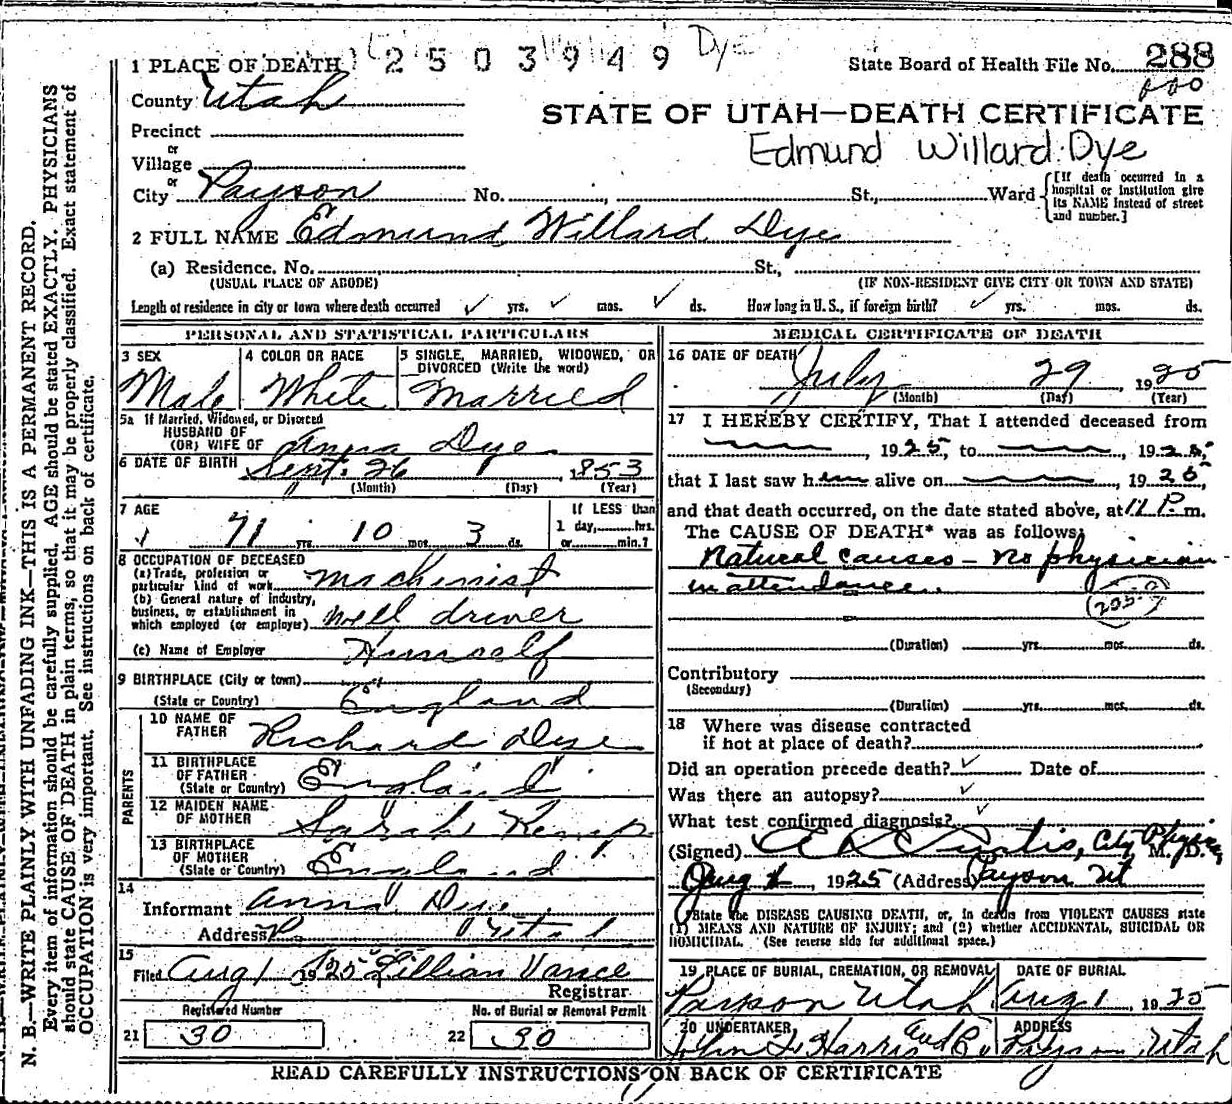 2503949 Dye
1 PLACE OF DEATH
State Board of Health File No. 288
County Utah
STATE OF UTAH—DEATH CERTIFICATE
Precinct
or
Edmund Willard Dye
Village
or
City Payson No. , St., Ward [If death occurred in a hospital or institution give its NAME instead of street and number.]
2 FULL NAME Edmund Willard Dye
(a) Residence. No. St.,
(USUAL PLACE OF ABODE) (IF NON-RESIDENT GIVE CITY OR TOWN AND STATE)
Length of residence in city or town where death occurred ✓ yrs. ✓ mos. ✓ ds. How long in U. S., if foreign birth? ✓ yrs. mos. ds.
PERSONAL AND STATISTICAL PARTICULARS
3 SEX
Male
4 COLOR OR RACE
White
5 SINGLE, MARRIED, WIDOWED, OR
DIVORCED (Write the word)
Married
5a If Married, Widowed, or Divorced
HUSBAND OF
(OR) WIFE OF Anna Dye
6 DATE OF BIRTH Sept. 26, 1853
(Month) (Day) (Year)
7 AGE
71 yrs. 10 mos. 3 ds.
If LESS than
1 day, hrs.
or min.?
8 OCCUPATION OF DECEASED
(a) Trade, profession or
particular kind of work Machinist
(b) General nature of industry,
business, or establishment in
which employed (or employer) well driver
(c) Name of Employer Himself
9 BIRTHPLACE (City or town)
(State or Country) England
PARENTS
10 NAME OF
FATHER Richard Dye
11 BIRTHPLACE
OF FATHER
(State or Country) England
12 MAIDEN NAME
OF MOTHER Sarah Kemp
13 BIRTHPLACE
OF MOTHER
(State or Country) England
14
Informant Anna Dye
Address Utah
15
Filed Aug 1 1925 Lillian Vance
Registrar
Registered Number
21 30
No. of Burial or Removal Permit
22 30
MEDICAL CERTIFICATE OF DEATH
16 DATE OF DEATH
July 29, 1925
(Month) (Day) (Year)
17 I HEREBY CERTIFY, That I attended deceased from
, 1925, to , 1925,
that I last saw him alive on , 1925
and that death occurred, on the date stated above, at 11 P. m.
The CAUSE OF DEATH* was as follows:
Natural causes – no physician
in attendance.
(205.)
(Duration) yrs. mos. ds.
Contributory
(Secondary)
(Duration) yrs. mos. ds.
18 Where was disease contracted
if not at place of death?
Did an operation precede death? ✓ Date of
Was there an autopsy? ✓
What test confirmed diagnosis? ✓
(Signed) A D Curtis, City Physician M. D.
Aug 1, 1925 (Address) Payson Ut
*State the DISEASE CAUSING DEATH, or, in deaths from VIOLENT CAUSES state
(1) MEANS AND NATURE OF INJURY; and (2) whether ACCIDENTAL, SUICIDAL OR
HOMICIDAL. (See reverse side for additional space.)
19 PLACE OF BURIAL, CREMATION, OR REMOVAL
Payson Utah
DATE OF BURIAL
Aug 1, 1925
20 UNDERTAKER
John L. Harris and Co
ADDRESS
Payson, Utah
READ CAREFULLY INSTRUCTIONS ON BACK OF CERTIFICATE
N. B.—WRITE PLAINLY WITH UNFADING INK—THIS IS A PERMANENT RECORD.
Every item of information should be carefully supplied. AGE should be stated EXACTLY. PHYSICIANS
should state CAUSE OF DEATH in plain terms, so that it may be properly classified. Exact statement of
OCCUPATION is very important. See instructions on back of certificate.